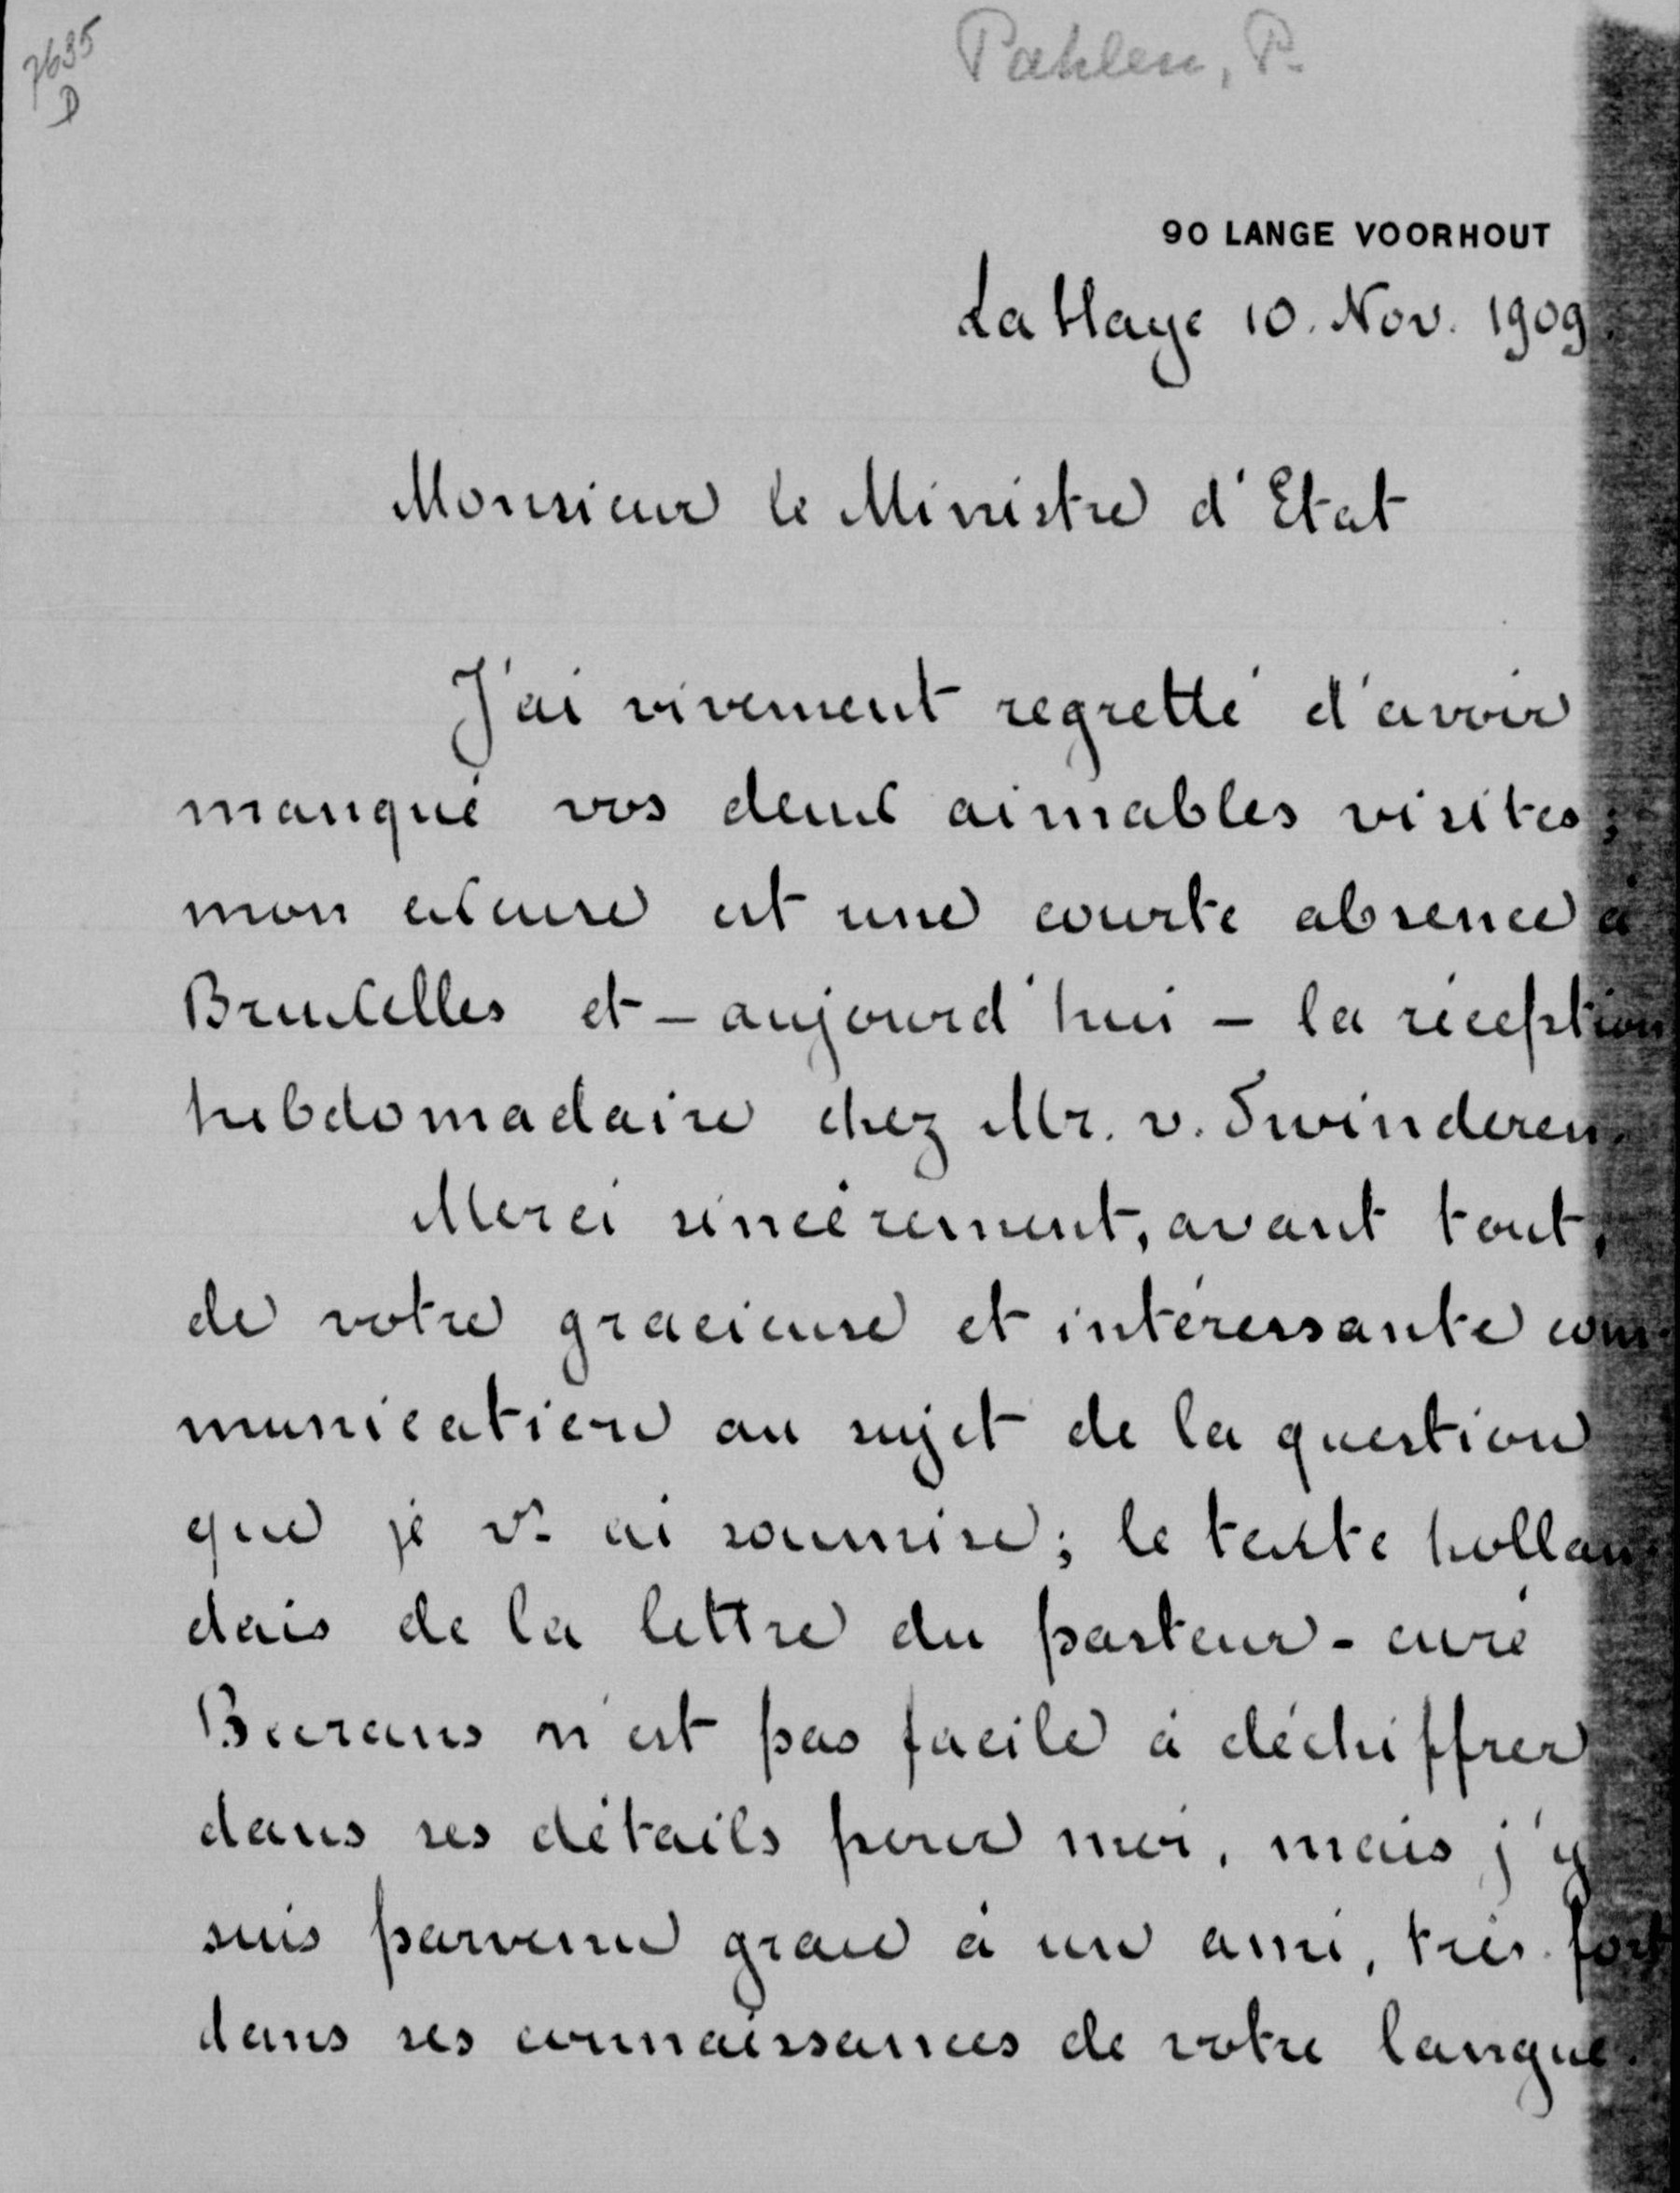 7635
D
Pahlen, P.
90 LANGE VOORHOUT
La Haye 10. Nov. 1909.
Monsieur le Ministre d'Etat
J'ai vivement regretté d'avoir
manqué vos deux aimables visites;
mon excuse est une courte absence à
Bruxelles et – aujourd'hui – la réception
hebdomadaire chez Mr. v. Swinderen.
Merci sincèrement, avant tout,
de votre gracieuse et intéressante com-
munication au sujet de la question
que je vs ai soumise; le texte hollan-
dais de la lettre du pasteur-curé
n'est pas facile à déchiffrer
dans ses détails pour moi, mais j'y
suis parvenu grace à un ami, très fort
dans ses connaissances de votre langue.